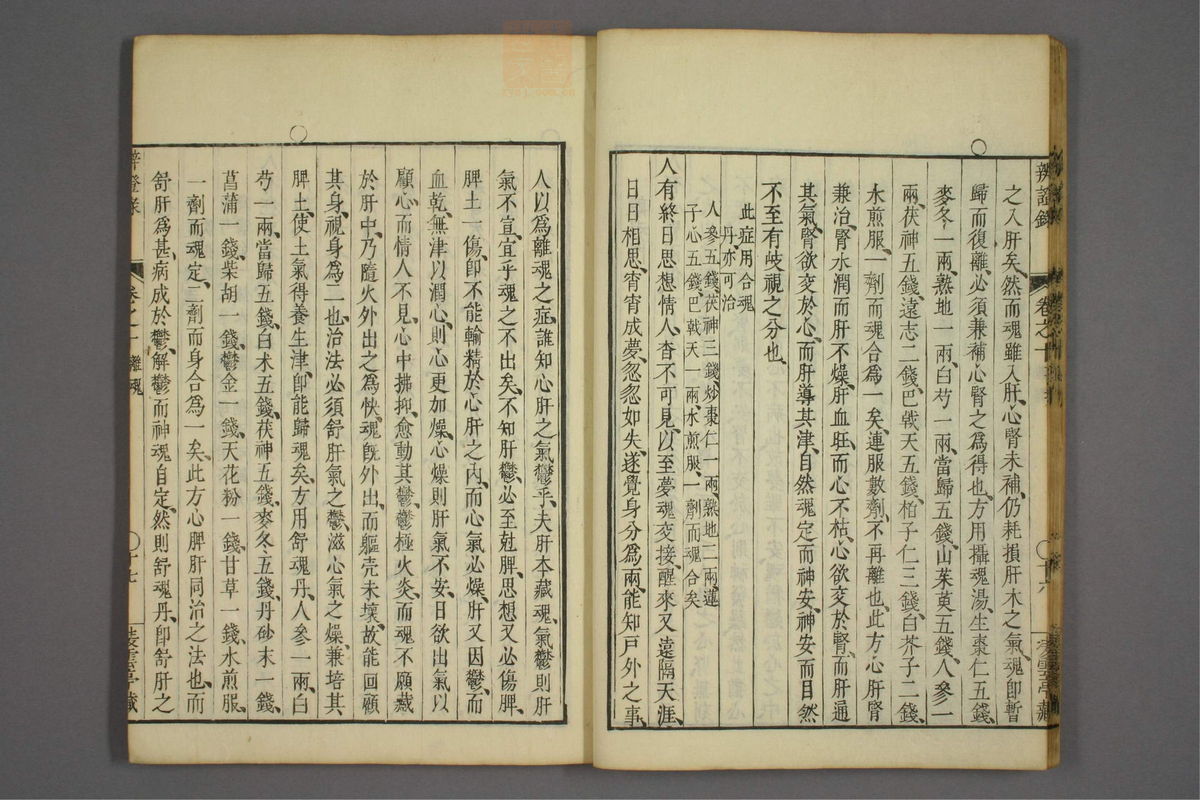 辨證錄
卷之一
十六
之入肝矣然而魂雖入肝心腎未補仍耗損肝木之氣魂卽暫
歸而復離必須兼補心腎之爲得也方用攝魂湯生棗仁五錢
麥冬一兩熟地一兩白芍一兩當歸五錢山茱萸五錢人參一
兩茯神五錢遠志二錢巴戟天五錢柏子仁三錢白芥子二錢
水煎服一劑而魂合爲一矣連服數劑不再離也此方心肝腎
兼治腎水潤而肝不燥肝血旺而心不枯心欲交於腎而肝通
其氣腎欲交於心而肝導其津自然魂定而神安神安而目然
不至有歧視之分也
此症用合魂
丹亦可治
人參五錢茯神三錢炒棗仁一兩熟地二兩蓮
子心五錢巴戟天一兩水煎服一劑而魂合矣
人有終日思想情人杳不可見以至夢魂交接醒來又遠隔天涯
日日相思宵宵成夢忽忽如失遂覺身分爲兩能知戶外之事
人以爲離魂之症誰知心肝之氣鬱乎夫肝本藏魂氣鬱則肝
氣不宣宜乎魂之不出矣不知肝鬱必至尅脾思想又必傷脾
脾土一傷卽不能輸精於心肝之內而心氣必燥肝又因鬱而
血乾無津以潤心則心更加燥心燥則肝氣不安日欲出氣以
顧心而情人不見心中拂抑愈動其鬱鬱極火炎而魂不願藏
於肝中乃隨火外出之爲快魂旣外出而軀壳未壞故能回顧
其身視身爲二也治法必須舒肝氣之鬱滋心氣之燥兼培其
脾土使土氣得養生津卽能歸魂矣方用舒魂丹人參一兩白
芍一兩當歸五錢白术五錢茯神五錢麥冬五錢丹砂末一錢
菖蒲一錢柴胡一錢鬱金一錢天花粉一錢甘草一錢水煎服
一劑而魂定二劑而身合爲一矣此方心脾肝同治之法也而
舒肝爲甚病成於鬱解鬱而神魂自定然則舒魂丹卽舒肝之
卷之一
離魂
十七